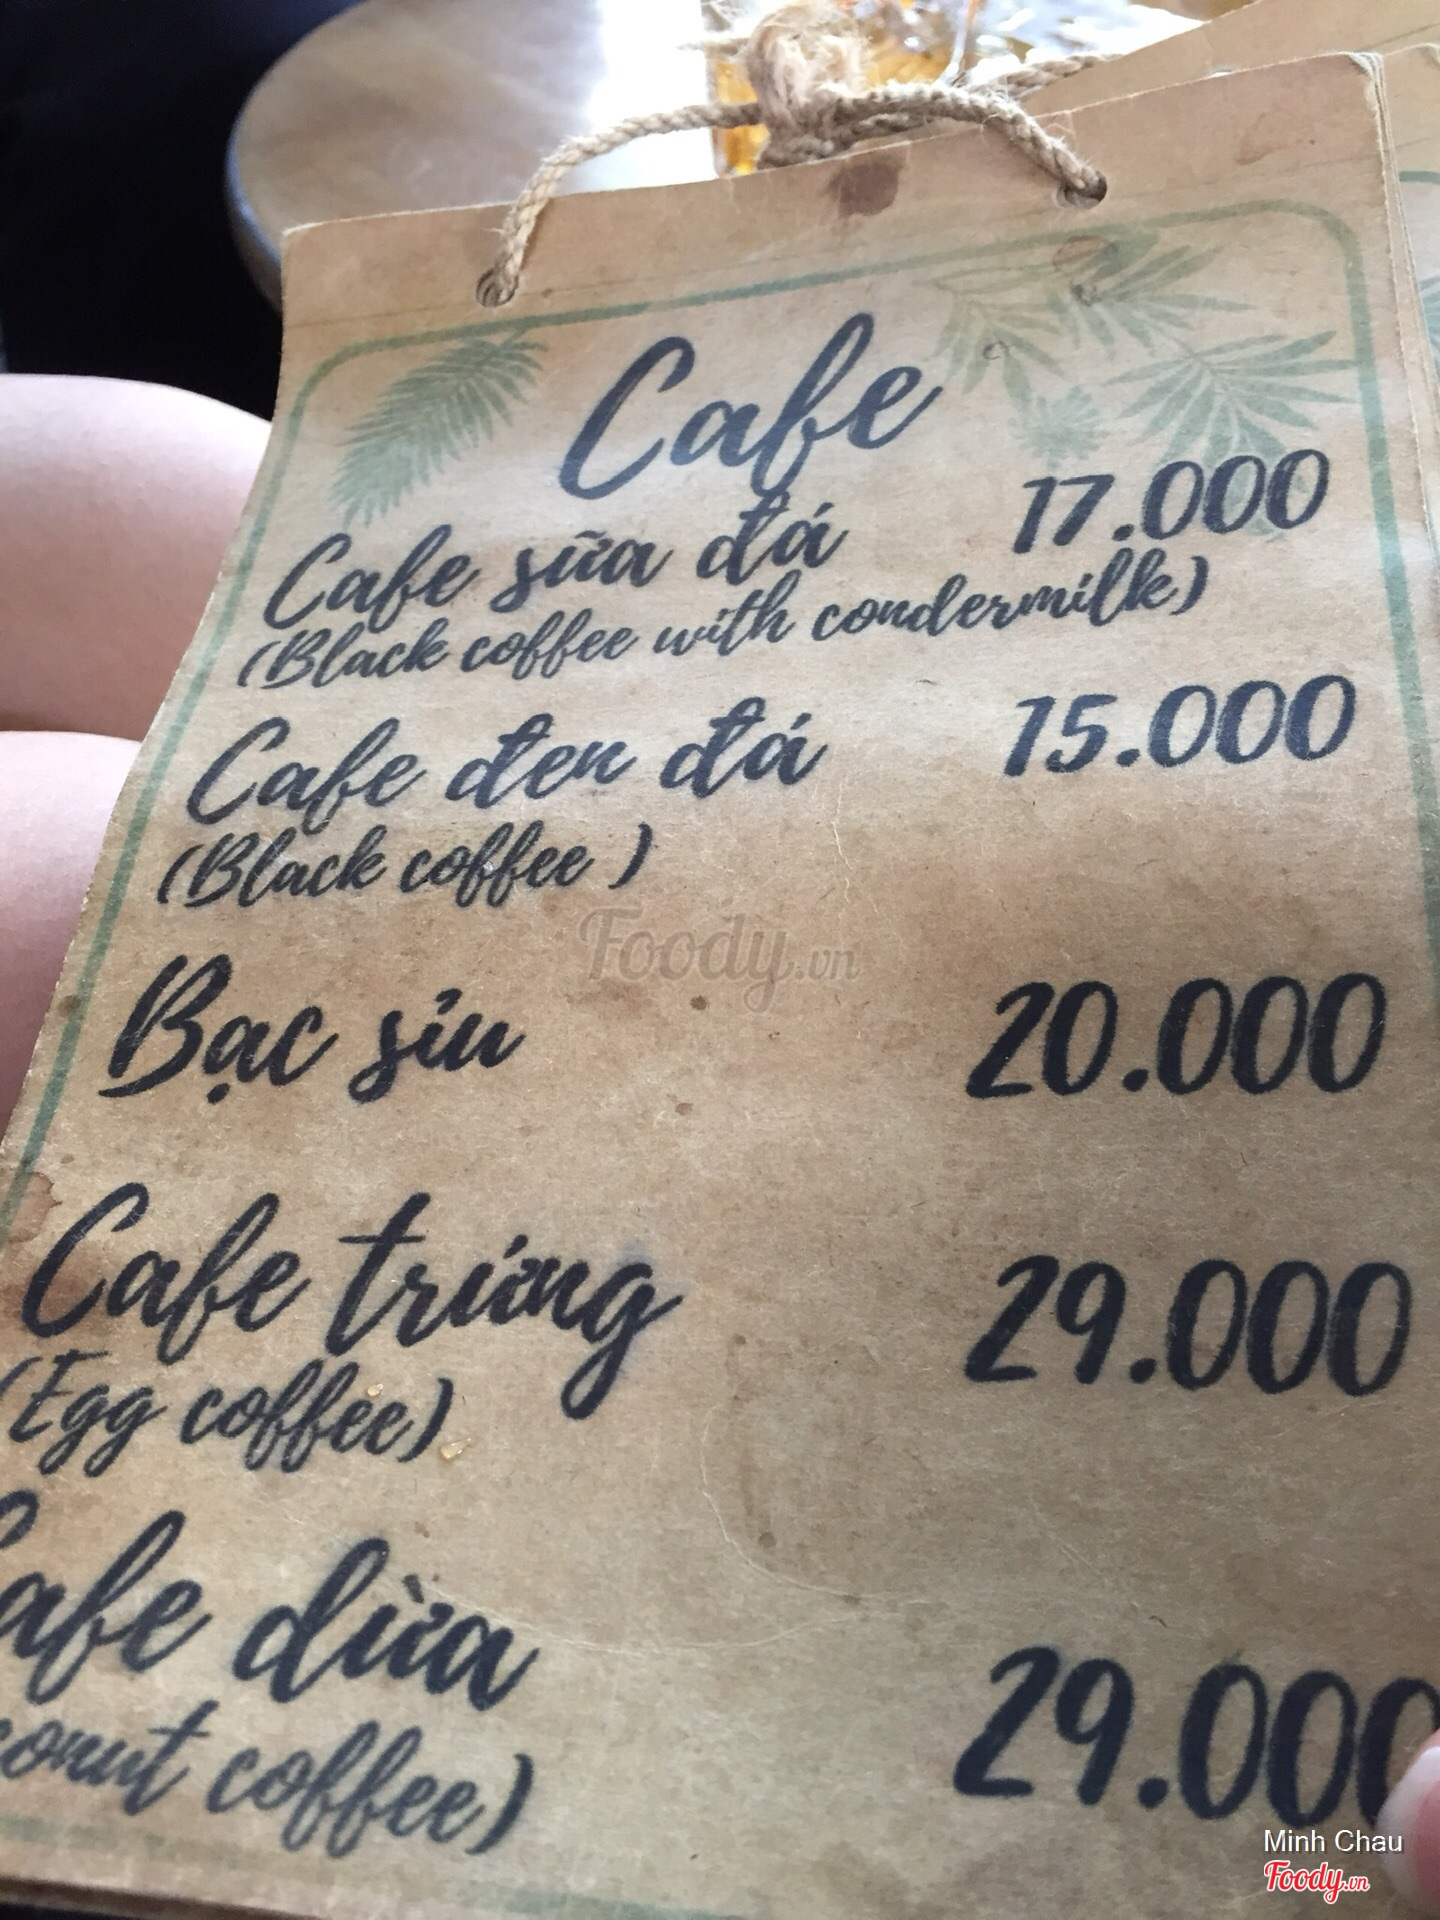 Cafe
Cafe sữa đá 17.000
(Black coffee with condermilk)
Cafe đen đá 15.000
(Black coffee )
Foody.vn
Bạc sỉu 20.000
Cafe trứng 29.000
(Egg coffee)
afe dừa 29.000
conut coffee)
Minh Chau
Foody.vn